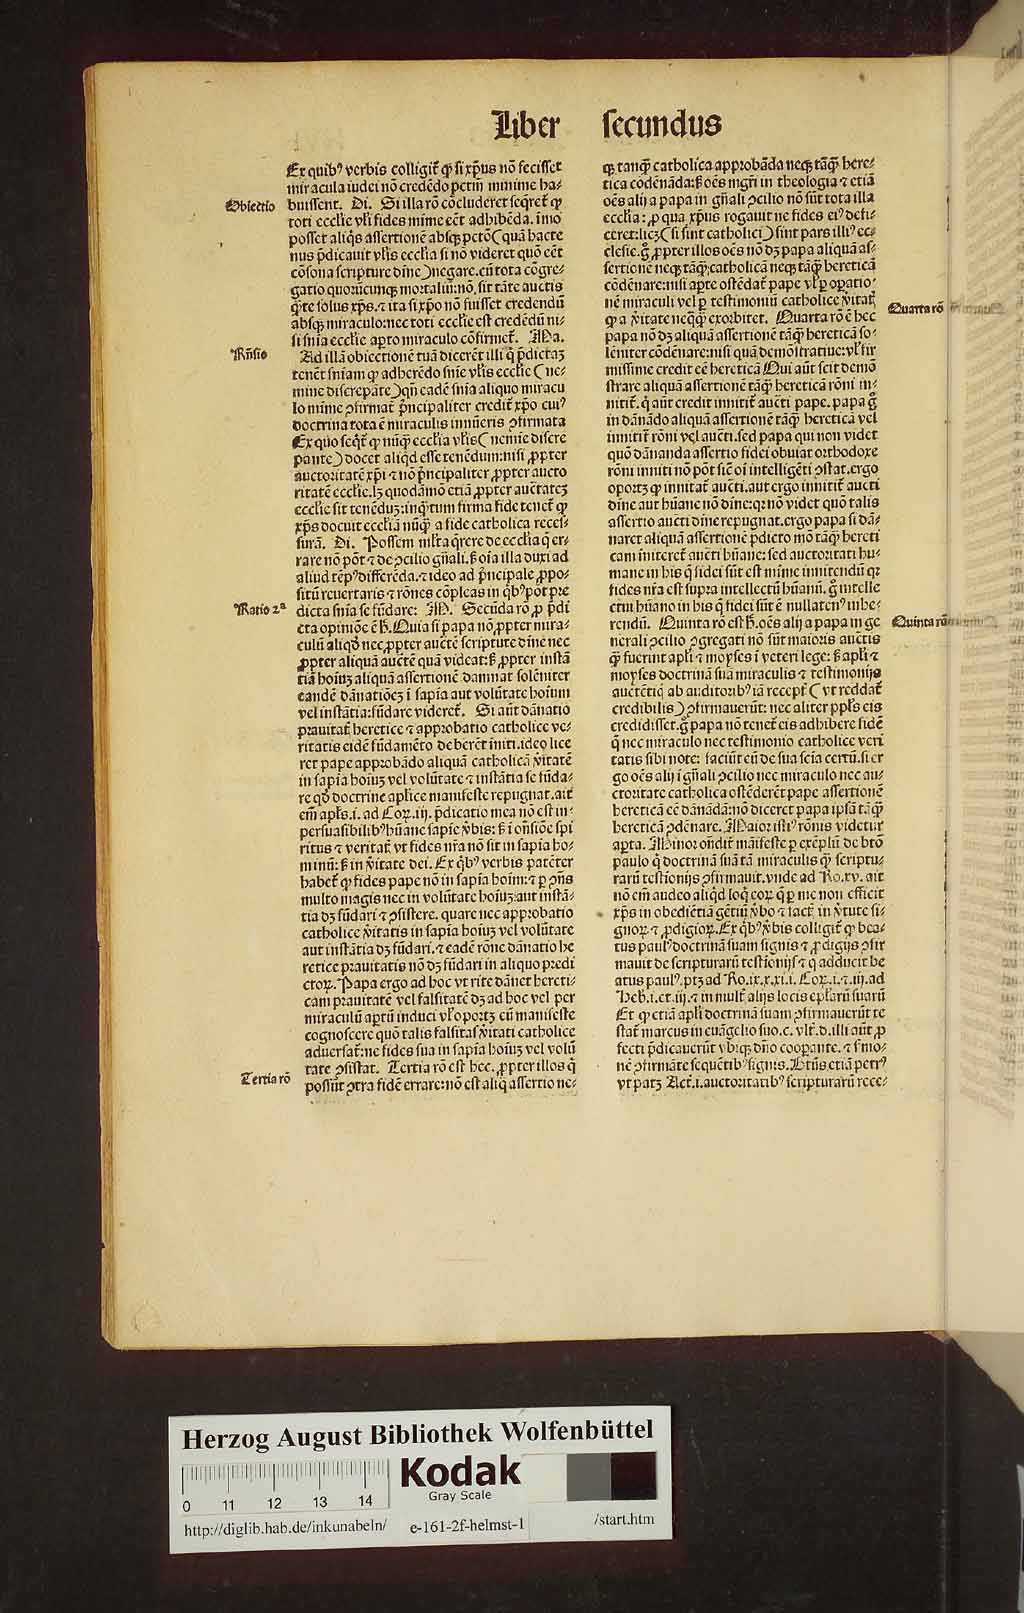 Liber secundus
Ex quibꝰ verbis colligit̄ ꝙ si xp̄us nō fecisset
miracula iudei nō credēdo pctm̄ minime ha⸗
Obiectio
buissent. Di. Si illa rō cōcluderet seq̄ret̄ ꝙ
toti eccl'ie vl'i fides mīme eēt adhibēda. īmo
posset aliq̄s assertionē absqꝫ pctō (quā hacte
nus p̄dicauit vl'is eccl'ia si nō videret quō eēt
cōsona scripture dīne) negare. cū tota cōgre⸗
gatio quorūcunqꝫ mortaliū: nō sit tāte auctis
q̄te solus xp̄s. ⁊ ita si xp̄o nō fuisset credendū
absqꝫ miraculo: nec toti eccl'ie est credēdū ni⸗
si snīa eccl'ie ap̄to miraculo cōfirmet̄. Ma.
Rn̄sio
Ad illā obiectionē tuā dicerēt illi q̄ p̄dictaꝫ
tenēt sniam ꝙ adherēdo snīe vl'is eccl'ie (ne⸗
mine discrepāte) qn̄ eadē snīa aliquo miracu
lo mīme ꝯfirmat̄ p̄ncipaliter credit̄ xp̄o cuiꝰ
doctrina tota ē miraculis innūeris ꝯfirmata
Ex quo seq̄t̄ ꝙ nūq̄ eccl'ia vl'is (nemīe discre
pante) docet aliqd esse tenēdum: nisi ꝓpter
auctoritatē xp̄i ⁊ nō p̄ncipaliter ꝓpter aucto
ritatē eccl'ie. lꝫ quodāmō etiā ꝓpter auctāteꝫ
eccl'ie sit tenēduꝫ: inq̄tum firma fide tenet̄ ꝙ
xp̄s docuit eccl'iā nūq̄ a fide catholica reces⸗
surā. Di. Possem ml'ta q̄rere de eccl'ia q̄ er⸗
rare nō pōt ⁊ de ꝯcilio gn̄ali. sꝫ oīa illa duxi ad
aliud tēpꝰ differēda. ⁊ ideo ad p̄ncipale ꝓpo⸗
sitū reuertaris ⁊ rōnes cōpleas in qbꝰ pōt pre
Ratio 2ª
dicta snīa se fūdare: M. Secūda rō ꝓ p̄di
cta opiniōe ē hꝰ. Quia si papa nō ꝓpter mira⸗
culū aliqd nec ꝓpter auctē scripture dīne nec
ꝓpter aliquā auctē quā videat: sꝫ ꝓpter instā
tiā hoiuꝫ aliquā assertionē damnat solēniter
eandē dānatiōeꝫ ī sapīa aut volūtate hoīum
vel instātia: fūdare videret̄. Si aūt dānatio
prauitat̄ heretice ⁊ approbatio catholice ve⸗
ritatis eidē fūdamēto deberēt initi. ideo lice
ret pape approbādo aliquā catholicā v̄itatē
in sapīa hoiuꝫ vel volūtate ⁊ instātia se fūda⸗
re qd doctrine apl'ice manifeste repugnat. ait
em̄ apl's .i. ad Coꝝ. iij. p̄dicatio mea nō est in⸗
persuasibilibꝰ hūane sapīe v̄bis: sꝫ ī on̄siōe spi
ritus ⁊ veritat̄ vt fides nr̄a nō sit in sapīa ho⸗
minū: sꝫ in v̄itate dei. Ex qbꝰ verbis patēter
habet̄ ꝙ fides pape nō in sapīa hoīm: ⁊ ꝑ ꝯn̄s
multo magis nec in volūtate hoiuꝫ aut instā⸗
tia dꝫ fūdari ⁊ ꝯsistere. quare nec approbatio
catholice v̄itatis in sapīa hoiuꝫ vel volūtate
aut instātia dꝫ fūdari. ⁊ eadē rōne dānatio he
retice prauitatis nō dꝫ fūdari in aliquo predi
ctoꝝ. Papa ergo ad hoc vt rite dānet hereti⸗
cam prauitatē vel falsitatē dꝫ ad hoc vel per
miraculū aptū induci vl' oportꝫ eū manifeste
cognoscere quō talis falsitas v̄itati catholice
aduersat̄: ne fides sua in sapīa hoiuꝫ vel volū
tate ꝯsistat. Tertia rō est hec. ꝓpter illos q̄
Tertia rō
possūt ꝯtra fidē errare: nō est aliq̄ assertio ne⸗
qꝫ tanq̄ catholica approbāda neqꝫ tāq̄ here⸗
tica cōdēnāda: sꝫ oēs mgr̄i in theologia ⁊ etiā
oēs alij a papa in gn̄ali ꝯcilio nō sūt tota illa
eccl'ia: ꝓ qua xp̄us rogauit ne fides eiꝰ defi⸗
ceret: licꝫ (si sint catholici) sint pars illiꝰ ec⸗
clesie. gͦ ꝓpter illos oēs nō dꝫ papa aliquā as⸗
sertionē neqꝫ tāq̄ catholicā neqꝫ tāq̄ hereticā
cōdēnare: nisi apte ostēdat̄ pape vl' ꝑ opatio⸗
nē miraculi vel ꝑ testimoniū catholice v̄itat̄
ꝙ a v̄itate neq̄q̄ exorbitet. Quarta rō ē hec
Quarta rō
papa nō dꝫ aliquā assertionē tāq̄ hereticā so⸗
lēniter cōdēnare: nisi quā demōstratiue: vl' fir
missime credit eē hereticā Qui aūt scit demō
strare aliquā assertionē tāq̄ hereticā rōni in⸗
nitit̄. q̄ aūt credit innitit̄ aucti pape. papa gͦ
in dānādo aliquā assertionē tāq̄ hereticā vel
innitit̄ rōni vel aucti. sed papa qui non videt
quō dānanda assertio fidei obuiat orthodoxe
rōni inniti nō pōt sic oī intelligēti ꝯstat. ergo
oportꝫ ꝙ innitat̄ aucti. aut ergo innitit̄ aucti
dīne aut hūane nō dīne: qꝛ nō videt quō talis
assertio aucti dīne repugnat. ergo papa si dā⸗
naret aliquā assertionē p̄dicto mō tāq̄ hereti
cam īniteret̄ aucti hūane: sed auctoritati hu⸗
mane in his q̄ fidei sūt est mīme innitendū qꝛ
fides nr̄a est supra intellectū hūanū. gͦ intelle
ctui hūano in his q̄ fidei sūt ē nullatenꝰ inhe⸗
rendū. Quinta rō est hꝰ. oēs alij a papa in ge
Quinta rō
nerali ꝯcilio ꝯgregati nō sūt maioris auctis
q̄ fuerint apl'i ⁊ moyses ī veteri lege: sꝫ apl'i ⁊
moyses doctrinā suā miraculis ⁊ testimonijs
auctētiq̄ ab auditoribꝰ iā recept̄ (vt reddat̄
credibilis) ꝯfirmauerūt: nec aliter ppl's eis
credidisset. gͦ papa nō tenet̄ eis adhibere fidē
q̄ nec miraculo nec testimonio catholice veri
tatis sibi note: faciūt eū de sua scīa certū. si er
go oēs alij ī gn̄ali ꝯcilio nec miraculo nec au⸗
ctoritate catholica ostēderēt pape assertionē
hereticā eē dānādā: nō diceret papa ipsā tāq̄
hereticā ꝯdēnare. Maior istiꝰ rōnis videtur
apta. Minor on̄dit̄ māifeste ꝑ exēplū de btō
paulo q̄ doctrinā suā tā miraculis q̄ scriptu⸗
rarū testionijs ꝯfirmauit. vnde ad Ro. xv. ait
nō em̄ audeo aliqd loq̄ eoꝝ q̄ ꝑ me non efficit
xp̄s in obediētiā gētiū v̄bo ⁊ fact̄ in v̄tute si⸗
gnoꝝ ⁊ ꝓdigioꝝ. Ex qbꝰ v̄bis colligit̄ ꝙ bea⸗
tus paulꝰ doctrinā suam signis ⁊ ꝓdigijs ꝯfir
mauit de scripturarū testionijs ⁊ q̄ adducit be
atus paulꝰ. ptꝫ ad Ro. ix. x. xi. i. Coꝝ. i. ⁊. iij. ad
Heb. i. et. iij. ⁊ in mult̄ alijs locis epl'arū suarū
Et ꝙ etiā apl'i doctrinā suam ꝯfirmauerūt te
stat̄ marcus in euāgelio suo. c. vlt̄. d. illi aūt ꝓ
fecti p̄dicauerūt vbiqꝫ dn̄o coopante. ⁊ s̄mo⸗
nē ꝯfirmāte sequētibꝰ signis. Btūs etiā petrꝰ
vt patꝫ Act̄. i. auctoritatibꝰ scripturarū rece⸗
Herzog August Bibliothek Wolfenbüttel
0 11 12 13 14
Kodak
Gray Scale
http://diglib.hab.de/inkunabeln/ e-161-2f-helmst-1 /start.htm